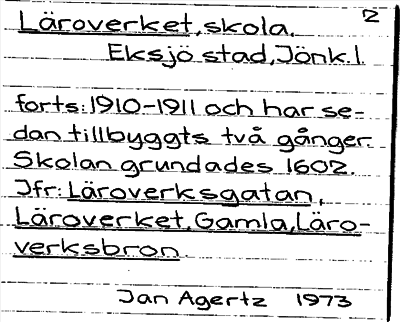 2
Läroverket, skola.
Eksjö stad, Jönk.l.
forts: 1910-1911 och har se-
dan tillbyggts två gånger.
Skolan grundades 1602.
Jfr: Läroverksgatan,
Läroverket, Gamla, Läro-
verksbron.
Jan Agertz 1973